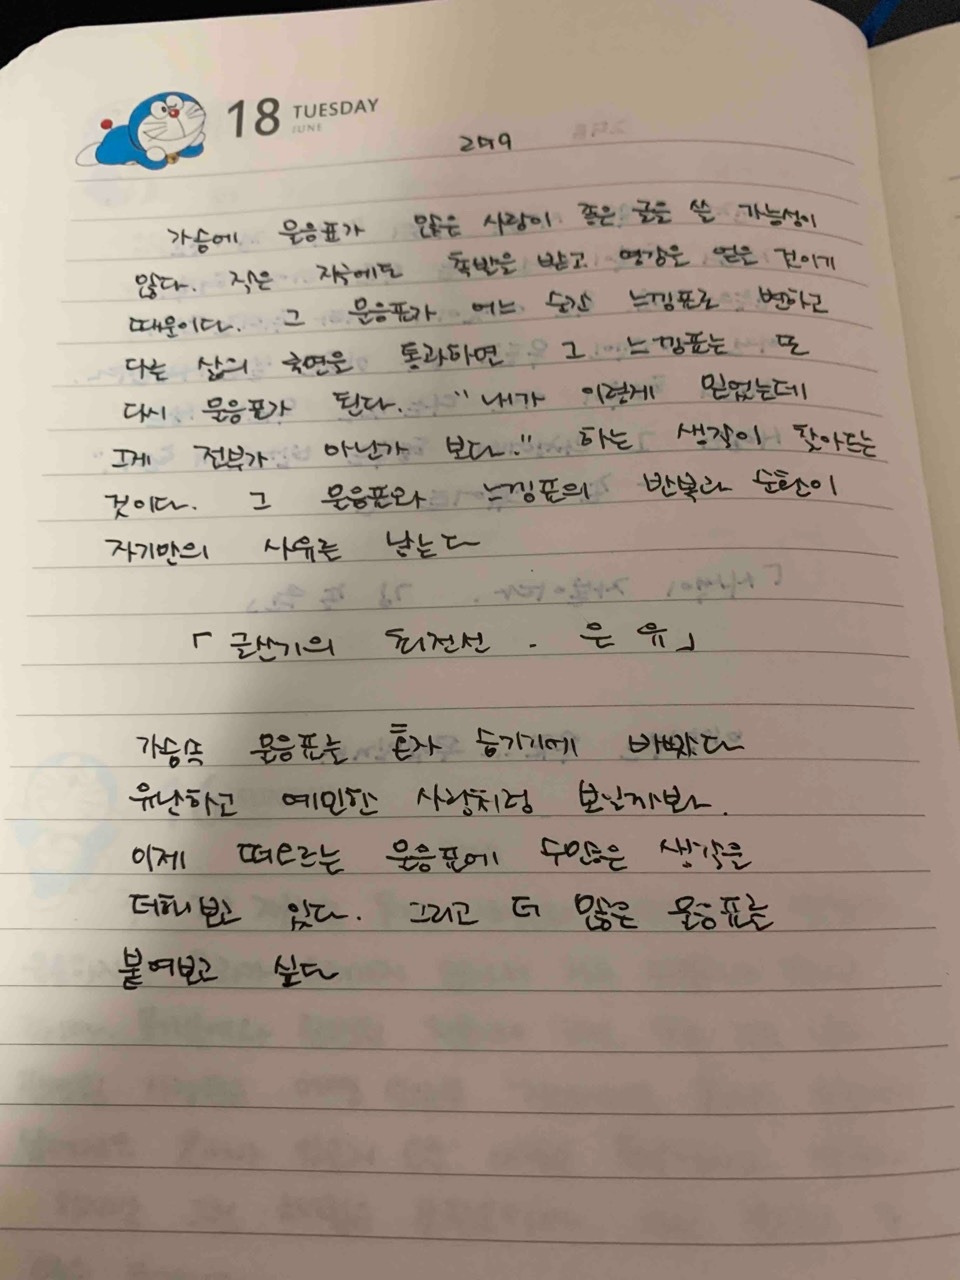 18 TUESDAY
JUNE
가슴에 물음표가 많은 사람이 좋은 글을 쓸 가능성이
많다. 작은 자극에도 촉발을 받고 영감을 얻은 것이기
때문이다. 그 물음표가 어느 순간 느낌표로 변하고
다른 삶의 국면을 통과하면 그 느낌표는 또
다시 물음표가 된다. "내가 이렇게 믿었는데
그게 전부가 아닌가 보다." 하는 생각이 찾아드는
것이다. 그 물음표와 느낌표의 반복과 순환이
자기만의 사유를 낳는다
「글쓰기의 최전선 - 은유」
가슴속 물음표는 혼자 숨기기에 바빴다
유난하고 예민한 사람처럼 보일까봐.
이제 떠오르는 물음표에 수많은 생각을
더해보고 있다. 그리고 더 많은 물음표를
붙여보고 싶다